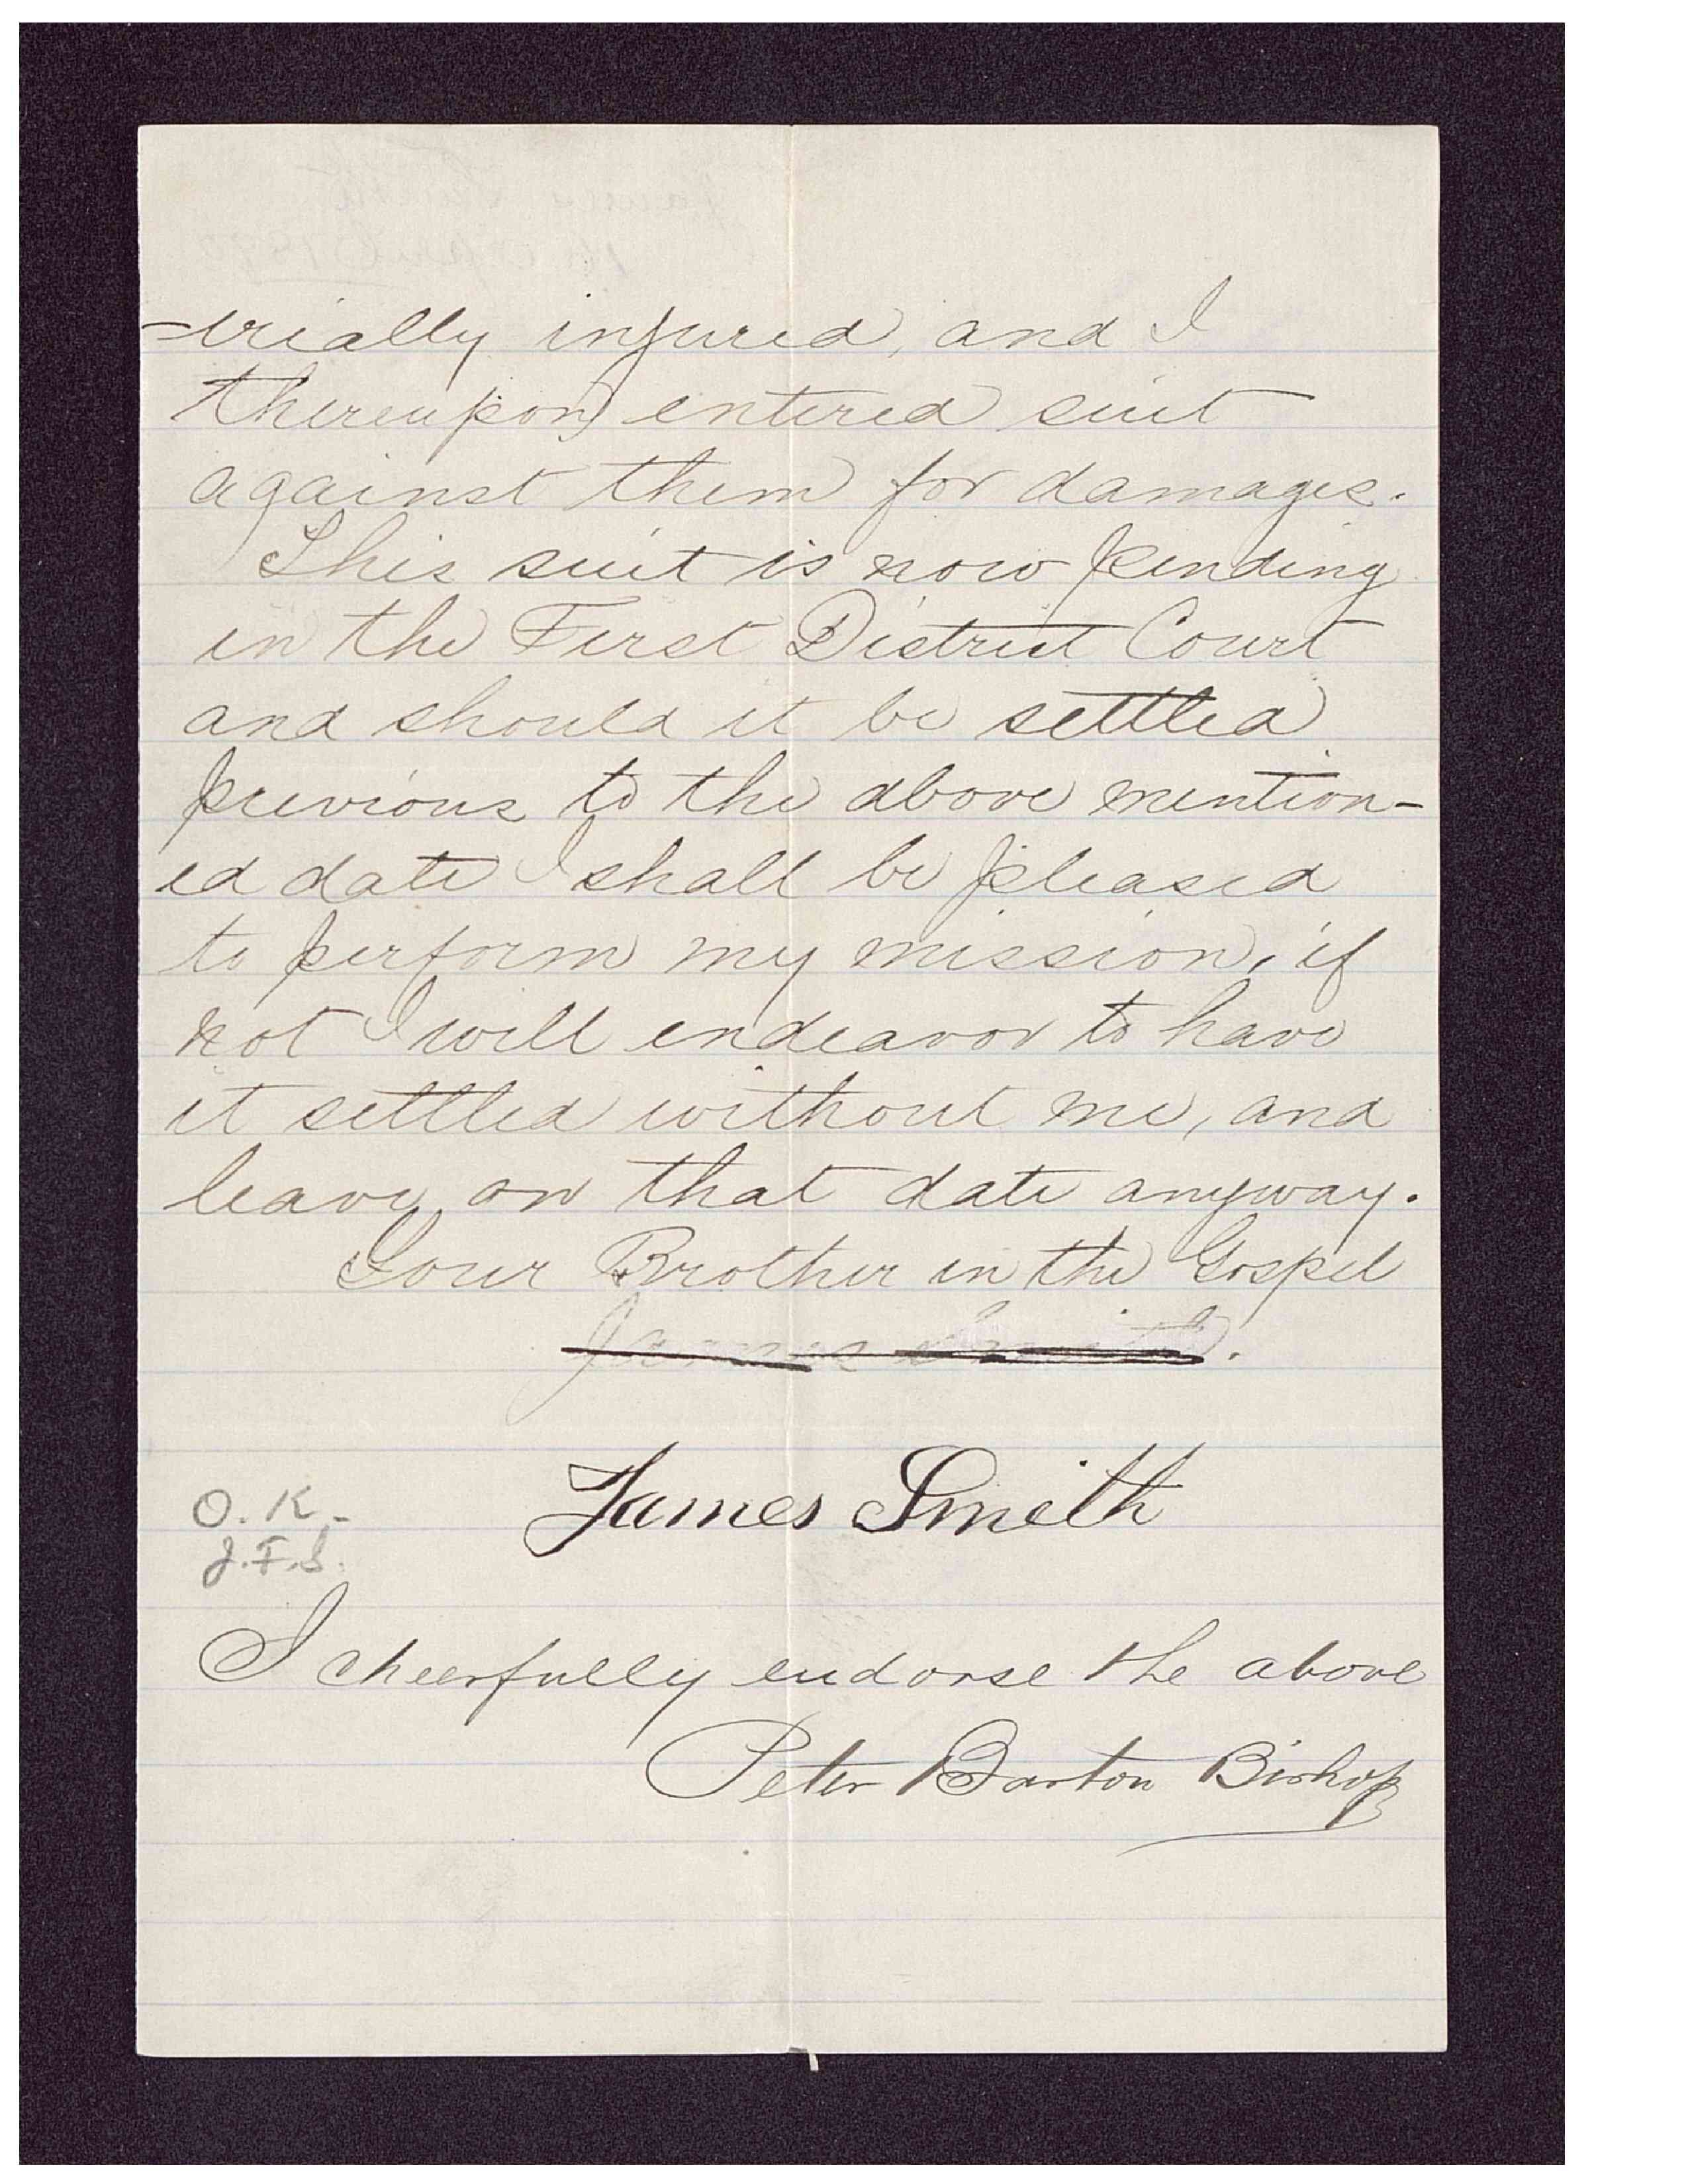 -trially injured, and I
thereupon entered suit
against them for damages.
This suit is now pending
in the First District Court
and should it be settled
previous to the above mention-
ed date I shall be pleased
to perform my mission, if
not I will endeavor to have
it settled without me, and
leave on that date anyway.
Your Brother in the Gospel
James Smith.
James Smith
O. K. -
J. F. S.
I cheerfully endorse the above
Peter Barton Bishop